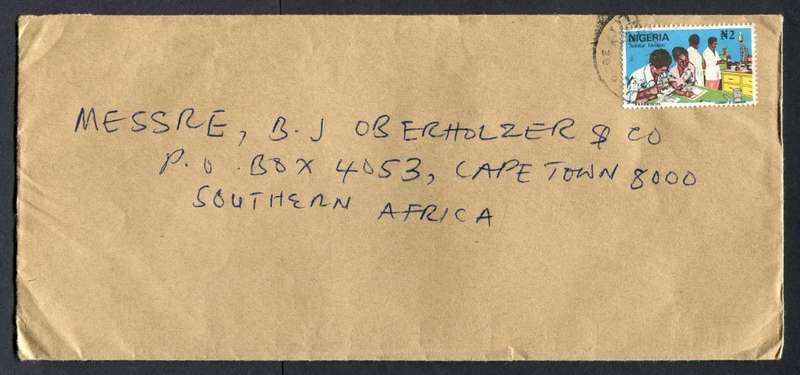 NIGERIA ₦2
MESSRE, B.J OBERHOLZER & CO
P.O. BOX 4053, CAPE TOWN 8000
SOUTHERN AFRICA